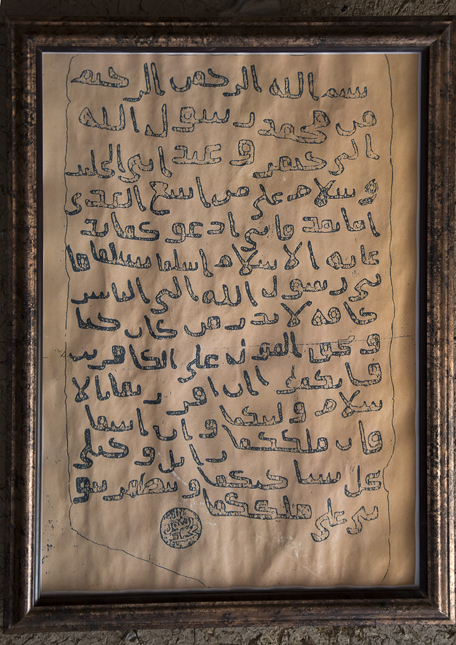 بسم الله الرحمن الرحيم
من محمد رسول الله
الى جيفر و عبد ابني الجلند
و سلام على من اتبع الهدى
اما بعد فاني ادعو كما بد
عايه الاسلام اسلما تسلما فا
ني رسول الله الى الناس
كافه لانذر من كان حيا
و يحق القول على الكافرين
فانكما ان اقررتما بالا
سلام وليتكما وان ابيتما
فان ملككما زايل و خيلي
تحل بساحتكما وتظهر نبو
تي على ملككما